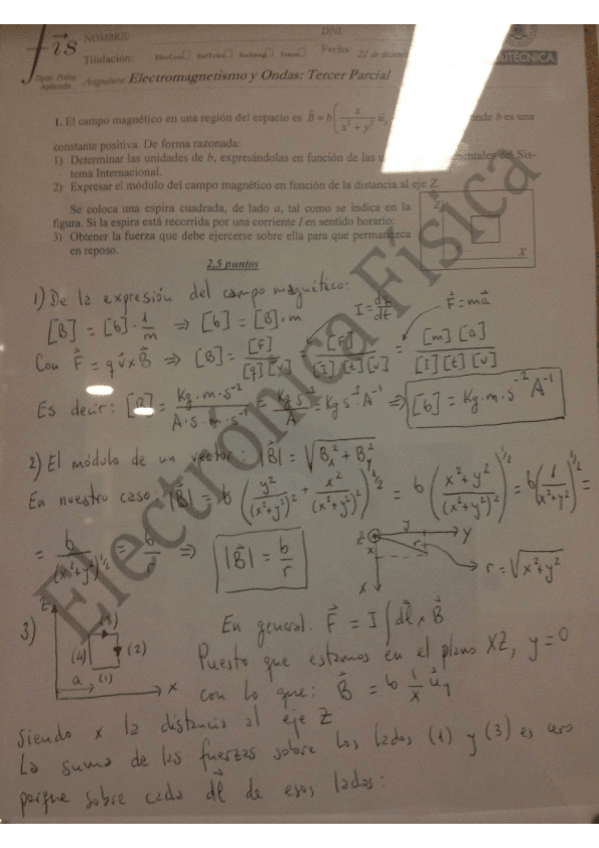 fis
NOMBRE:
DNI:
Titulación:
Fecha
22 de diciem
Dpto. Física
Aplicada
Asignatura: Electromagnetismo y Ondas: Tercer Parcial
POLITÉCNICA
1. El campo magnético en una región del espacio es B⃗ = b( x / x²+y² u⃗ donde b es una
constante positiva. De forma razonada:
1) Determinar las unidades de b, expresándolas en función de las del Sis-
tema Internacional.
2) Expresar el módulo del campo magnético en función de la distancia al eje Z
Se coloca una espira cuadrada, de lado a, tal como se indica en la
figura. Si la espira está recorrida por una corriente I en sentido horario:
3) Obtener la fuerza que debe ejercerse sobre ella para que permanezca
en reposo.
2,5 puntos
Z
X
1) De la expresión del campo magnético:
[B] = [b] · 1/m ⇒ [b] = [B] · m
I = dq/dt
F⃗ = m a⃗
Con F⃗ = q v⃗ x B⃗ ⇒ [B] = [F] / [q][v] = [F] / [I][t][v] = [m][a] / [I][t][v]
Es decir: [B] = Kg · m · s⁻² / A · s · m · s⁻¹ = Kg s⁻² / A = Kg s⁻² · A⁻¹ ⇒ [b] = Kg · m · s⁻² A⁻¹
2) El módulo de un vector: |B⃗| = √(Bx² + By²)
En nuestro caso: |B⃗| = b ( y² / (x²+y²)² + x² / (x²+y²)² )^1/2 = b ( x²+y² / (x²+y²)² )^1/2 = b ( 1 / x²+y² )^1/2 =
= b / (x²+y²)^1/2 = b / r ⇒ |B⃗| = b / r
Z x y r Y X
r = √(x²+y²)
3)
Z
(3)
(4) (2)
a (1)
X
En general: F⃗ = I ∫ dl⃗ x B⃗
Puesto que estamos en el plano XZ, y = 0
con lo que: B⃗ = b 1/x u⃗y
Siendo x la distancia al eje Z
La suma de las fuerzas sobre los lados (1) y (3) es cero
porque sobre cada dl⃗ de esos lados:
Electrónica Física